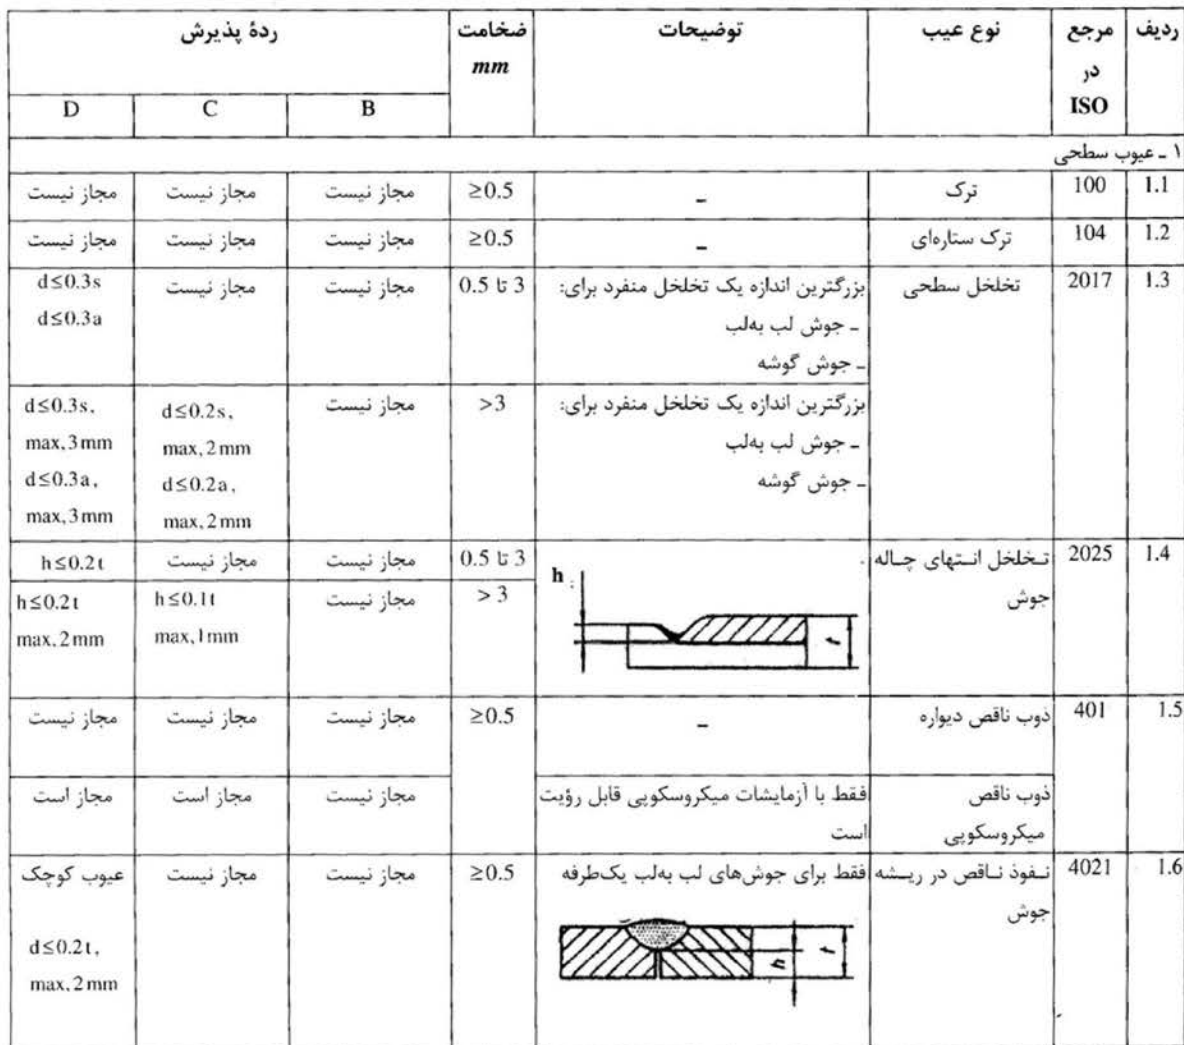 ردیف
مرجع
در
ISO
نوع عیب
توضیحات
ضخامت
mm
ردهٔ پذیرش
B
C
D
۱ ـ عیوب سطحی
1.1
100
ترک
–
≥0.5
مجاز نیست
مجاز نیست
مجاز نیست
1.2
104
ترک ستاره‌ای
–
≥0.5
مجاز نیست
مجاز نیست
مجاز نیست
1.3
2017
تخلخل سطحی
بزرگترین اندازه یک تخلخل منفرد برای:
ـ جوش لب به‌لب
ـ جوش گوشه
3 تا 0.5
مجاز نیست
مجاز نیست
d≤0.3s
d≤0.3a
بزرگترین اندازه یک تخلخل منفرد برای:
ـ جوش لب به‌لب
ـ جوش گوشه
>3
مجاز نیست
d≤0.2s,
max,2mm
d≤0.2a,
max,2mm
d≤0.3s,
max,3mm
d≤0.3a,
max,3mm
1.4
2025
تـخلخل انـتهای چـاله
جوش
h
t
3 تا 0.5
مجاز نیست
مجاز نیست
h≤0.2t
> 3
مجاز نیست
h≤0.1t
max,1mm
h≤0.2t
max,2mm
1.5
401
ذوب ناقص دیواره
–
≥0.5
مجاز نیست
مجاز نیست
مجاز نیست
ذوب ناقص
میکروسکوپی
فقط با آزمایشات میکروسکوپی قابل رؤیت
است
مجاز نیست
مجاز است
مجاز است
1.6
4021
نـفوذ نـاقص در ریـشه
جوش
فقط برای جوش‌های لب به‌لب یک‌طرفه
h
t
≥0.5
مجاز نیست
مجاز نیست
عیوب کوچک
d≤0.2t,
max,2mm